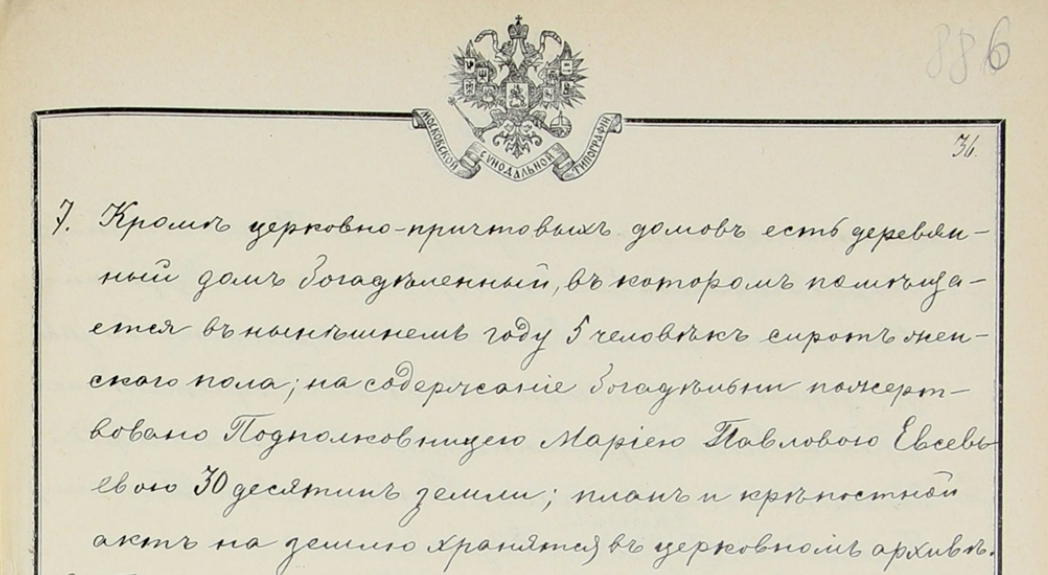 886
МОСКОВСКОЙ СУНОДАЛЬНОЙ ТИПОГРАФІИ
36.
7. Кромѣ церковно-причтовыхъ домовъ есть деревян-
ный домъ богадѣленный, въ которомъ помѣща-
ется въ нынѣшнемъ году 5 человѣкъ сиротъ жен-
скаго пола; на содержаніе богадѣльни пожерт-
вовано Подполковницею Маріею Павловою Евсевь-
евою 30 десятинъ земли; планъ и крѣпостной
актъ на землю хранятся въ церковномъ архивѣ.